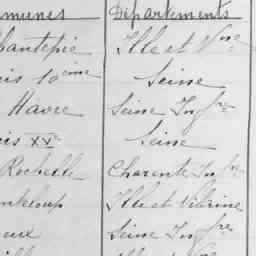 munes Départements
hantepie Ille et Vne
is 10ème Seine
Havre Seine Infre
is XXe Seine
Rochelle Charente Infre
nteloup Ille et Vilaine
eux Seine Infre